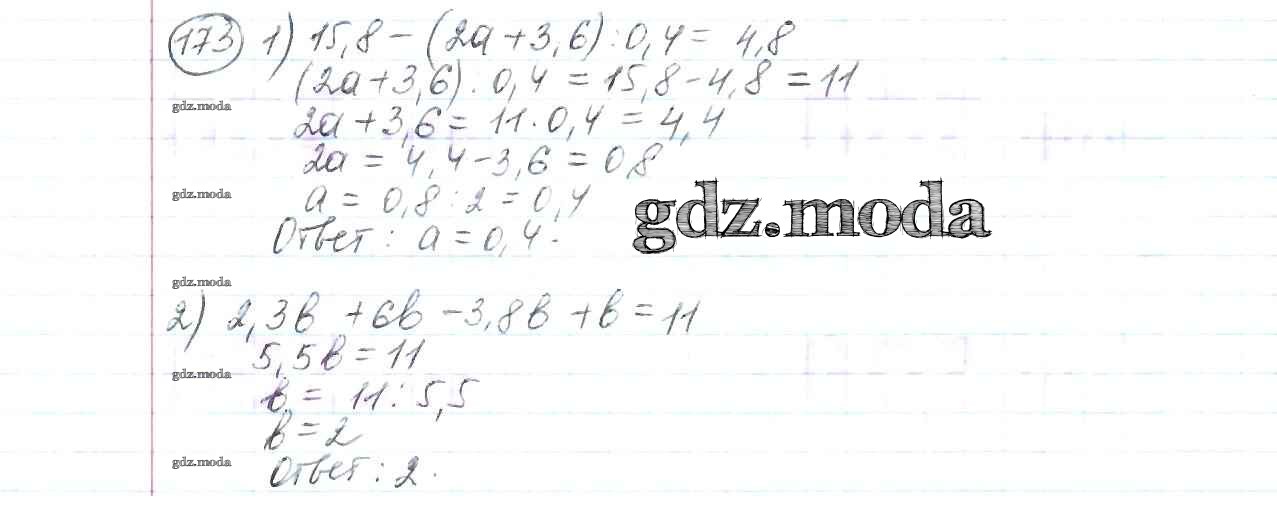 173 1) 15,8 - (2a + 3,6) : 0,4 = 4,8
(2a + 3,6) : 0,4 = 15,8 - 4,8 = 11
gdz.moda
2a + 3,6 = 11 · 0,4 = 4,4
2a = 4,4 - 3,6 = 0,8
gdz.moda
a = 0,8 : 2 = 0,4
gdz.moda
Ответ : a = 0,4.
gdz.moda
2) 2,3в + 6в - 3,8в + в = 11
5,5в = 11
gdz.moda
в = 11 : 5,5
в = 2
gdz.moda
Ответ : 2.